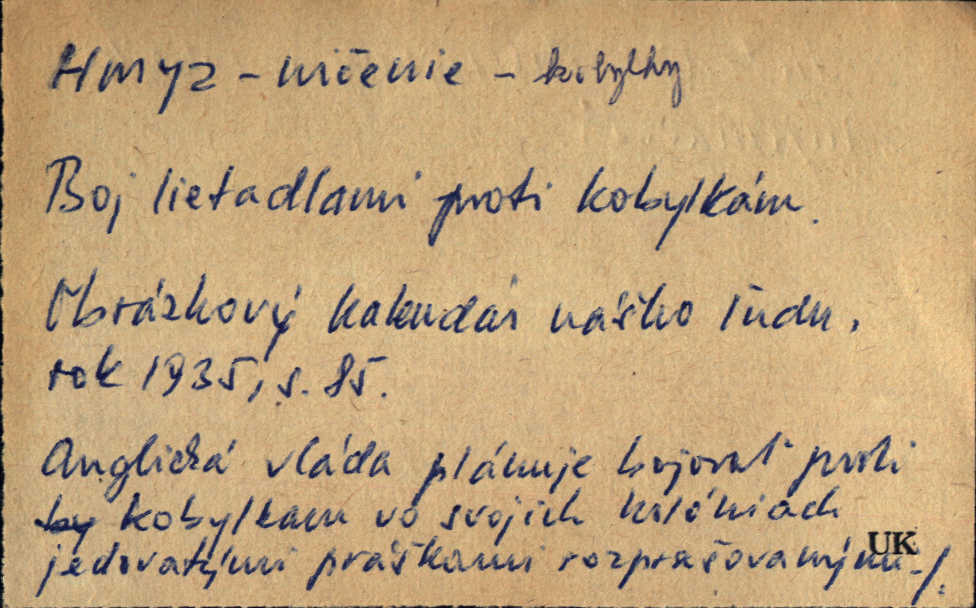 Hmyz - ničenie - kobylky
Boj lietadlami proti kobylkám.
Obrázkový kalendár nášho ľudu,
rok 1935, s. 85.
Anglická vláda plánuje bojovať proti
by kobylkam vo svojich kolóniach
jedovatými práškami rozprašovanými-/.
UK